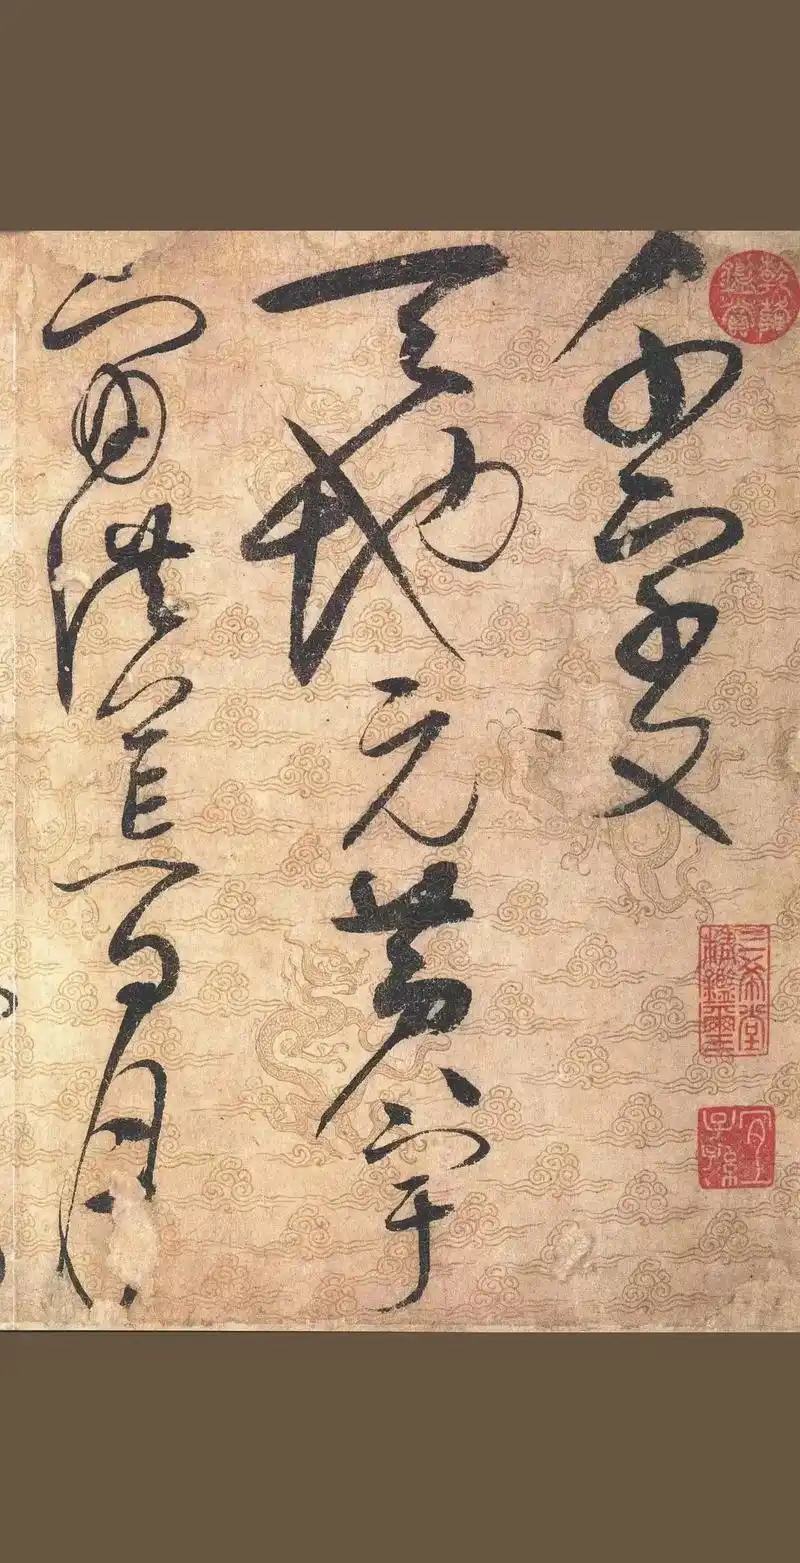 千字文
天地元黄宇
宙洪荒日月
乾隆鑑賞
三希堂精鑑璽
宜子孫